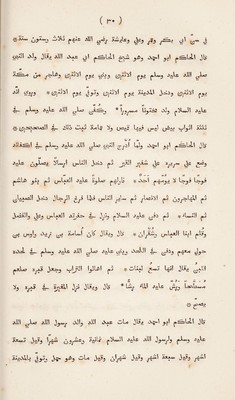 ( ٣٠ )
في سنّ ابي بكر وعمر وعلي وعايشة رضي الله عنهم ثلاث وستون سنة*
قال الحاكم ابو احمد وهو شيخ الحاكم ابي عبد الله يقال ولد النبي
صلي الله عليه وسلم يوم الاثنين ونبي يوم الاثنين وهاجر من مكة
يوم الاثنين ودخل المدينة يوم الاثنين وتوفي يوم الاثنين * وروي انه
عليه السلام ولد مختونًا مسرورًا * وكُفّن صلي الله عليه وسلم في
ثلثة اثواب بيض ليس فيها قميص ولا عمامة ثبت ذلك في الصحيحين *
قال الحاكم ابو احمد ولما أُدرج النبي صلي الله عليه وسلم في اكفانه
وضع علي سريره علي شفير القبر ثم دخل الناس ارسالًا يصلّون عليه
فوجًا فوجًا لا يؤمّهم احدٌ * فاولهم صلوةً عليه العباس ثم بنو هاشم
ثم المهاجرون ثم الانصار ثم ساير الناس فلما فرغ الرجال دخل الصبيان
ثم النساء * ثم دفن عليه السلام ونزل في حفرته العباس وعلي والفضل
وقثم ابنا العباس وشُقْران * قال ويقال كان أسامة بن زيد واوس بن
خولي معهم ودفن في اللحد وبني عليه صلي الله عليه وسلم في لحده
اللبن يقال انها تسع لبنات * ثم اهالوا التراب وجعل قبره صلعم
مُسطّحًا ورُشّ عليه الماء رشًّا * قال ويقال نزل المغيرة في قبره ولا
يصح *
قال الحاكم ابو احمد يقال مات عبد الله والد رسول الله صلي الله
عليه وسلم ولرسول الله عليه السلام ثمانية وعشرون شهرًا وقيل تسعة
اشهر وقيل سبعة اشهر وقيل شهران وقيل مات وهو حمل وتوفي بالمدينة